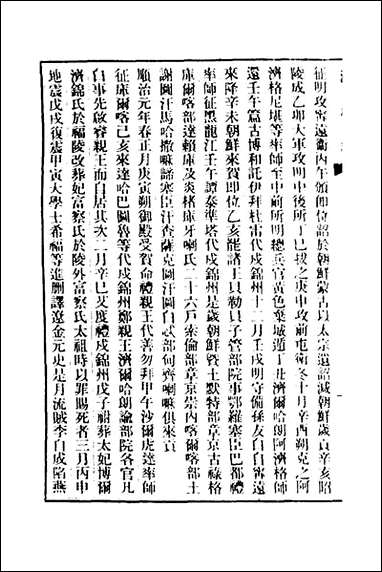 征明攻甯遠衞丙午頒即位詔於朝鮮蒙古以太宗遺詔減朝鮮歲貢辛亥昭
陵成乙卯大軍攻明中後所丁巳拔之庚申攻前屯衞冬十月辛酉朔克之阿
濟格尼堪等率師至中前所明總兵官黃色棄城遁丁丑濟爾哈朗阿濟格師
還壬午篇古博和託伊拜杜雷代戍錦州十二月壬戌明守備孫友白自甯遠
來降辛未朝鮮來賀即位乙亥罷諸王貝勒貝子管部院事鄂羅塞臣巴都禮
率師征黑龍江壬午譚泰準塔代戍錦州是歲朝鮮暨土默特部章京古祿格
庫爾喀部賴達庫及炎楮庫牙喇氏二十六戶索倫部章京崇內喀爾喀部土
謝圖汗馬哈撒嘛諦塞臣汗查薩克圖汗圖白忒部甸齊喇嘛俱來貢
順治元年春正月庚寅朔御殿受賀命禮親王代善勿拜甲午沙爾虎達率師
征庫爾喀己亥來達哈巴圖魯等代戍錦州鄭親王濟爾哈朗諭部院各官凡
白事先啟睿親王而自居其次二月辛巳艾度禮戍錦州戊子祔葬太妃博爾
濟錦氏於福陵改葬妃富察氏於陵外富察氏太祖時以罪賜死者三月丙申
地震戊戌復震甲寅大學士希福等進刪譯遼金元史是月流賊李自成陷燕